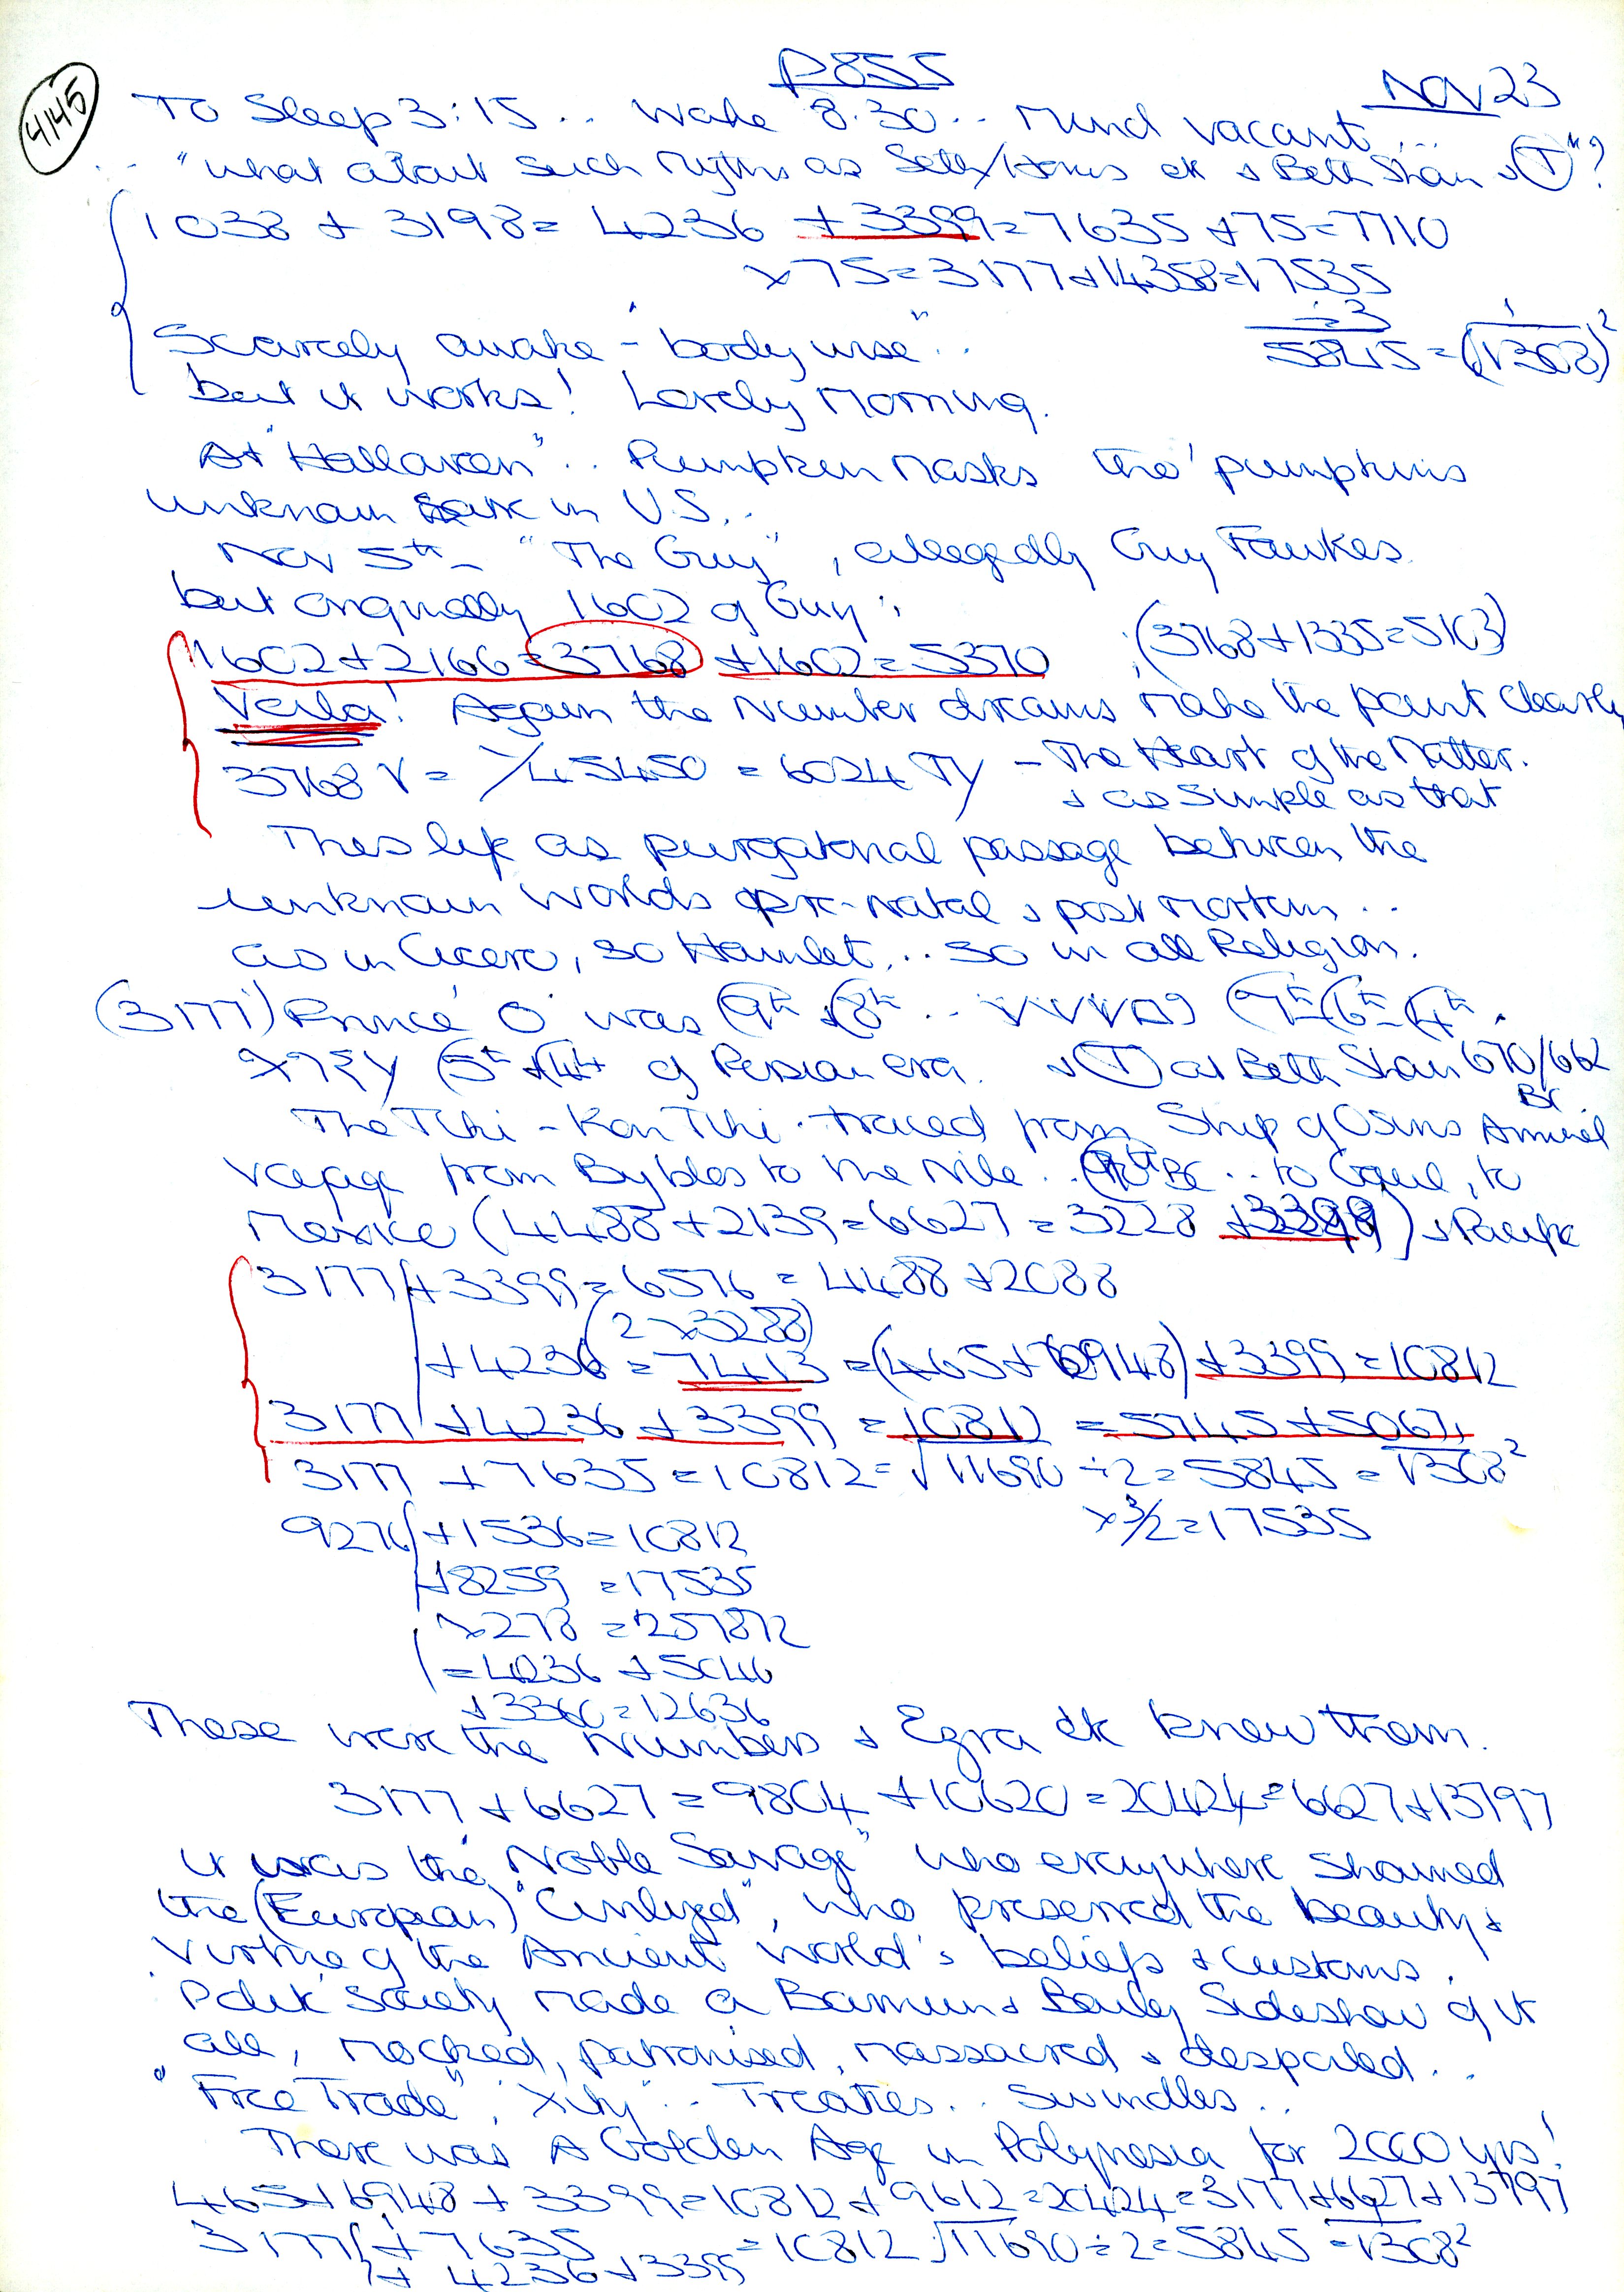 P855
4145
Nov 23
To Sleep 3:15 .. wake 8.30 .. Mind vacant ...
.. "what about such Myths as Seth/Horus etc & Beth Shan & (T)"?
1038 + 3198 = 4236 + 3399 = 7635 + 75 = 7710
x 75 = 3177 + 14358 = 17535
÷3
5845 = (√308)²
Scarcely awake - 'body wise" ..
but it works! Lovely Morning.
At "Halloween" .. Pumpkin Masks the pumpkins
unknown save in U.S. ..
Nov 5th - "The Guy", allegedly Guy Fawkes.
but originally 1602 of Guy:
1602 + 2166 = 3768 + 1602 = 5370 ; (3768 + 1335 = 5103)
Voila! Again the Number dreams make the point clearly
3768 V = 45450 = 6024 TY - The Heart of the Matter.
& as simple as that
This life as purgatorial passage between the
unknown worlds pre-natal & post mortem ..
as in Cicero, so Hamlet, .. so in all Religion.
(3177) Prince 'O' was (9th & (8th .. (7th (6th (4th .
(5th & (4th of Persian era. & (T) at Beth Shan 670/662
BC
The Tiki - Kon Tiki . traced from Ship of Osiris Annual
voyage from Byblos to the Nile .. BC .. to Gaul, to
Mexico (4488 + 2139 = 6627 = 3228 + 3399) & Pacific
3177 + 3399 = 6576 = 4488 + 2088
(2 x 3288)
+ 4236 = 7413 = (465 + 6948) + 3399 = 10812
3177 + 4236 + 3399 = 10812 = 5745 + 5067
3177 + 7635 = 10812 = √11690 ÷ 2 = 5845 = √308²
x 3/2 = 17535
9276 + 1536 = 10812
+ 8259 = 17535
x 278 = 257872
= 4236 + 5040
+ 3360 = 12636
These were the Numbers & Ezra etc knew them.
3177 + 6627 = 9804 + 10620 = 20424 = 6627 + 13797
It was the "Noble Savage" who everywhere shamed
the (European) "Civilized", who preserved the beauty &
virtue of the Ancient World's beliefs & customs.
Polite Society made a Barnum & Bailey Sideshow of it
all, mocked, patronised, massacred & despoiled ..
"Free Trade", 'Xity' .. Treaties .. Swindles ..
There was A Golden Age in Polynesia for 2000 yrs!
465 + 6948 + 3399 = 10812 + 9612 = 20424 = 3177 + 6627 + 13797
3177 + 7635 = 10812 √11690 ÷ 2 = 5845 = √308²
+ 4236 + 3399